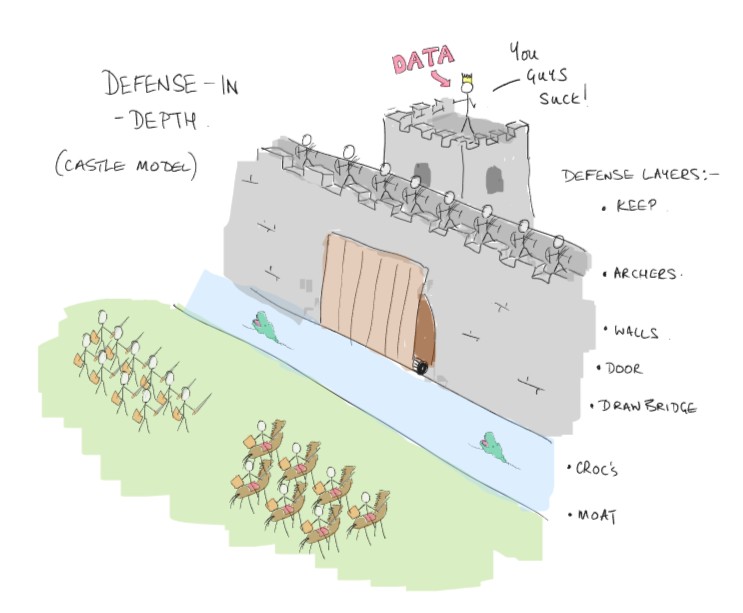 DEFENSE-IN
-DEPTH.
(CASTLE MODEL)
DATA
YOU
GUYS
SUCK!
DEFENSE LAYERS:-
• KEEP.
• ARCHERS.
• WALLS.
• DOOR
• DRAWBRIDGE
• CROC'S
• MOAT